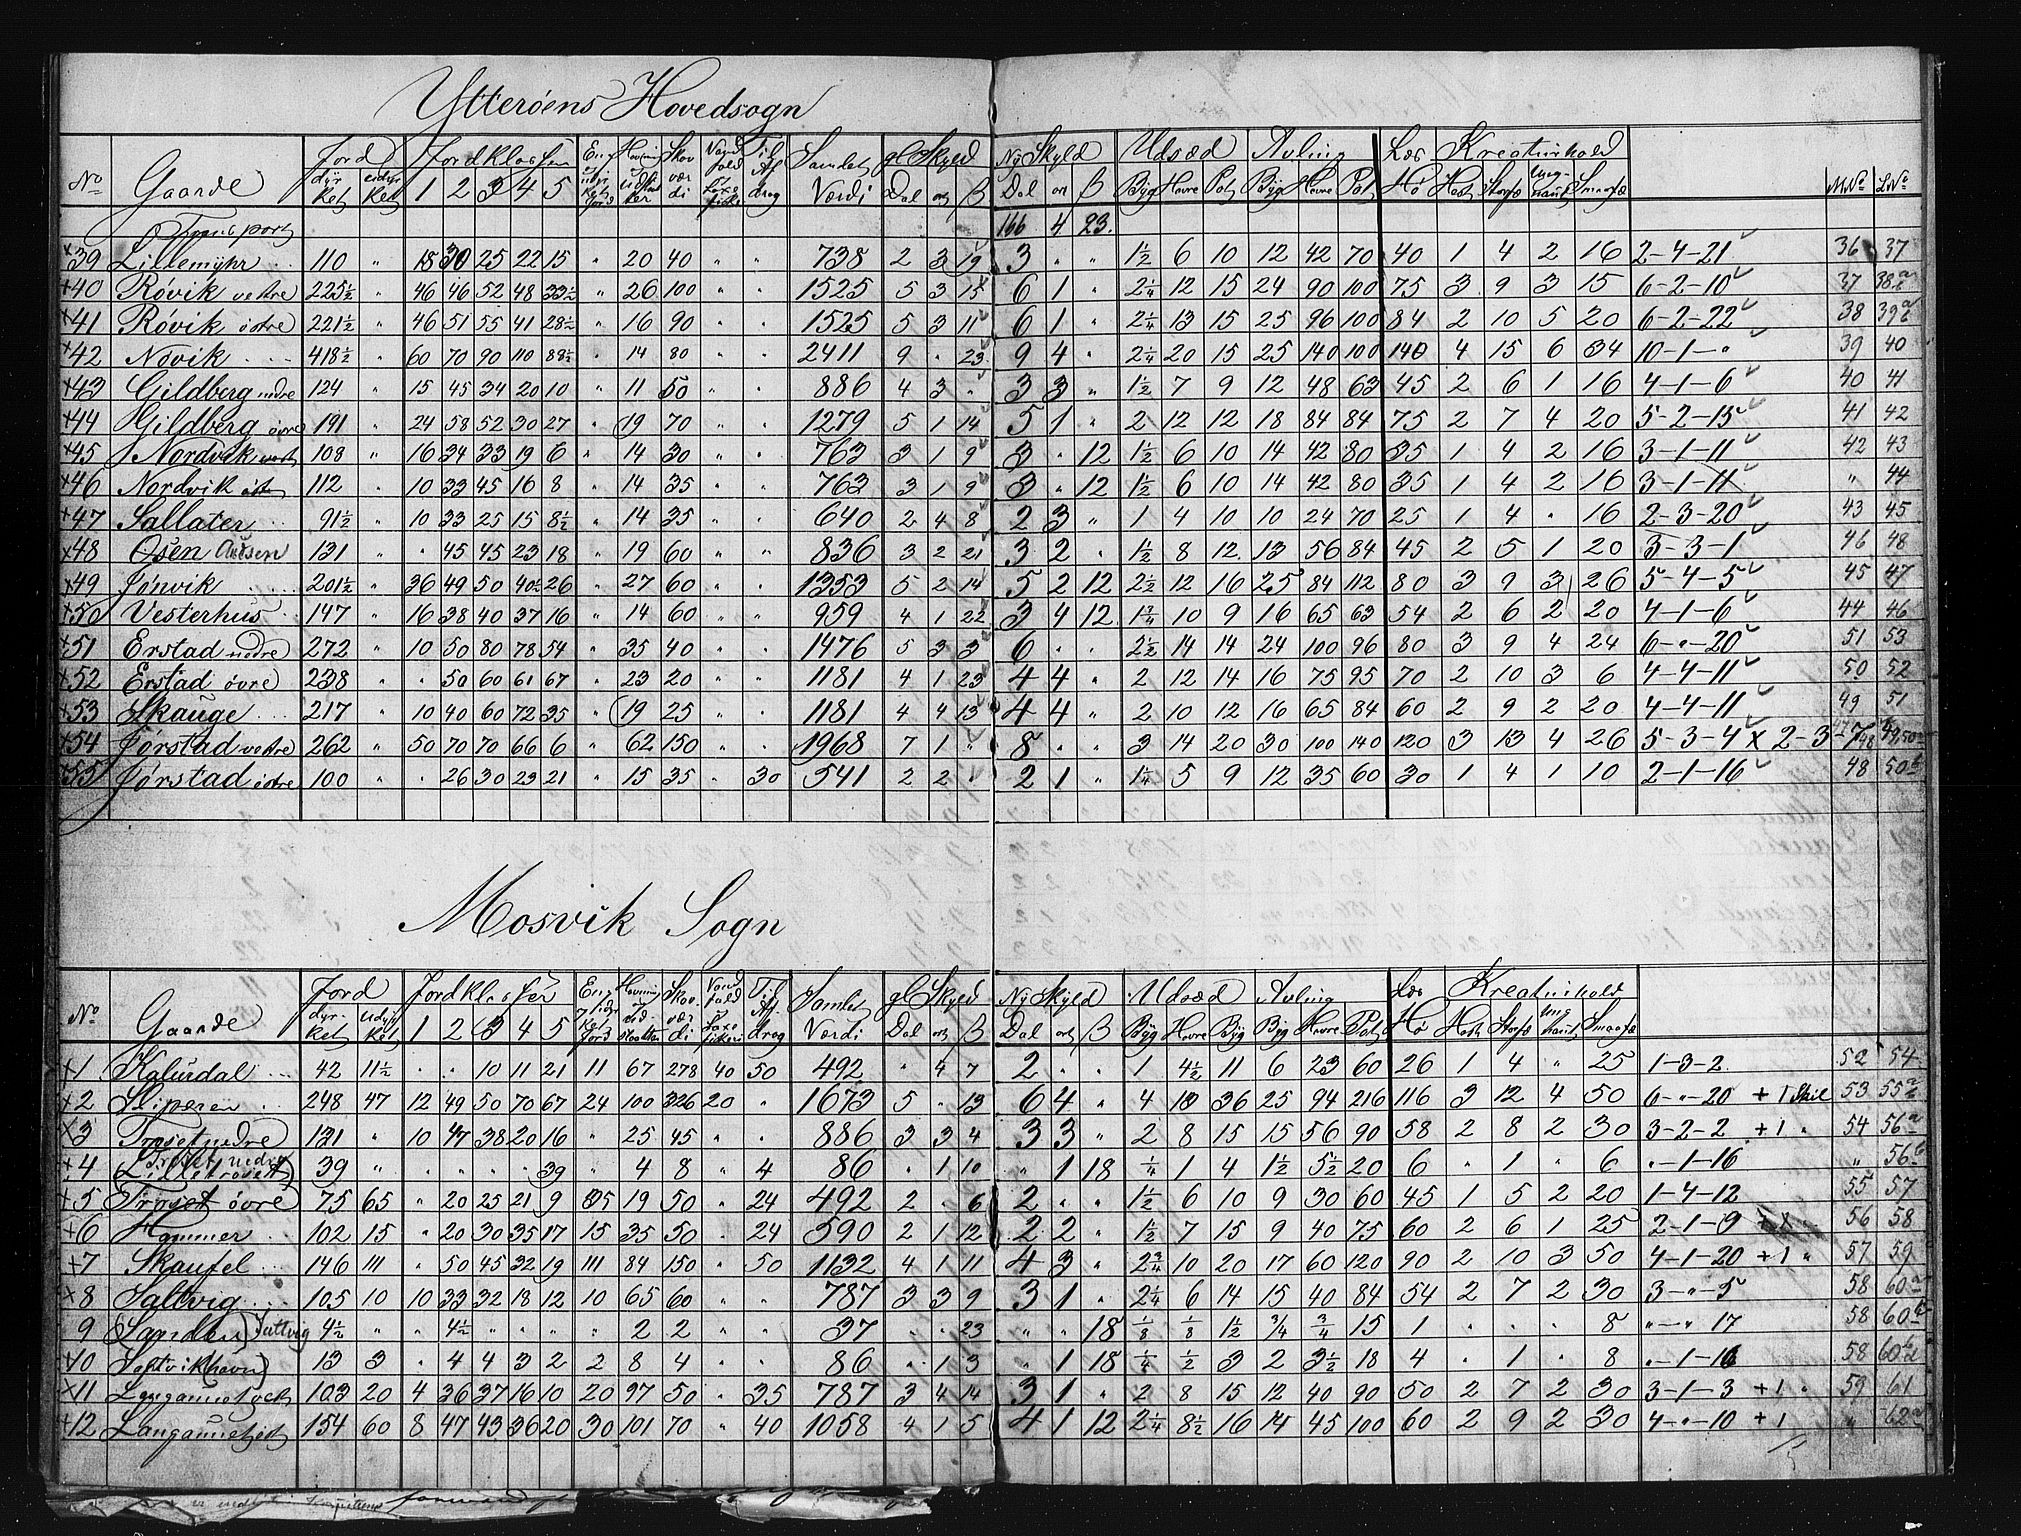 Ytterøens Hovedsogn
No Gaarde Jord dyrket udyrket Jordklasser 1 2 3 4 5 Skov værdi Samlet Værdi gl Skyld Dal ort β Ny Skyld Dal ort β Udsæd Byg Havre Pot Avling Byg Havre Pot Læs Hø Kreaturhold Hest Storfæ Ungnaut Smaafæ MNo LNo
Transport 166 4 23.
+39 Lillemyhr 110 " 18 30 25 22 15 " 20 40 " " 738 2 3 19 3 " " 1½ 6 10 12 42 70 40 1 4 2 16 2-4-21 36 37
+40 Røvik vestre 225½ " 46 46 52 48 33½ " 26 100 " " 1525 5 3 15 6 1 " 2¼ 12 15 24 90 100 75 3 9 3 15 6-2-10 37 38a
+41 Røvik østre 221½ " 46 51 55 41 28½ " 16 90 " " 1525 5 3 11 6 1 " 2¼ 13 15 25 96 100 84 2 10 5 20 6-2-22 38 39a
+42 Novik 418½ " 60 70 90 110 88½ " 14 80 " " 2411 9 " 23 9 4 " 2¼ 20 15 25 140 100 140 4 15 6 34 10-1-" 39 40
+43 Gildberg nedre 124 " 15 45 34 20 10 " 11 50 " " 886 4 3 " 3 3 " 1½ 7 9 12 48 63 45 2 6 1 16 4-1-6 40 41
+44 Gildberg øvre 191 " 24 58 52 30 27 " 19 70 " " 1279 5 1 14 5 1 " 2 12 12 18 84 84 75 2 7 4 20 5-2-15 41 42
+45 Nordvik vest 108 " 16 34 33 19 6 " 14 30 " " 763 3 1 9 3 " 12 1½ 6 10 14 42 80 35 1 4 2 16 3-1-11 42 43
+46 Nordvik øst 112 " 10 33 45 16 8 " 14 35 " " 763 3 1 9 3 " 12 1½ 6 10 14 42 80 35 1 4 2 16 3-1-11 " 44
+47 Sallater 91½ " 10 33 25 15 8½ " 14 35 " " 640 2 4 8 2 3 " 1 4 10 10 24 70 25 1 4 " 16 2-3-20 43 45
+48 Osen 131 " " 45 45 23 18 " 19 60 " " 836 3 2 21 3 2 " 1½ 8 12 13 56 84 45 2 5 1 20 3-3-1 46 48
+49 Jønvik 201½ " 36 49 50 40½ 26 " 27 60 " " 1353 5 2 14 5 2 12 2½ 12 16 25 84 112 80 3 9 3 26 5-4-5 45 47
+50 Vesterhus 147 " 16 38 40 37 16 " 14 60 " " 959 4 1 22 3 4 12 1¾ 10 9 16 65 63 54 2 6 2 20 4-1-6 44 46
+51 Erstad nedre 272 " 10 50 80 78 54 " 35 40 " " 1476 5 3 3 6 " " 2½ 14 14 24 100 96 80 3 9 4 24 6-"-20 51 53
+52 Erstad øvre 238 " " 50 60 61 67 " 23 20 " " 1181 4 1 23 4 4 " 2 12 14 16 75 95 70 2 10 3 6 4-4-11 50 52
+53 Skauge 217 " 10 40 60 72 35 " 19 25 " " 1181 4 4 13 4 4 " 2 10 12 16 65 84 60 2 9 2 20 4-4-11 49 51
+54 Jørstad vestre 262 " 50 70 70 66 6 " 62 150 " " 1968 7 1 " 8 " " 3 14 20 30 100 140 120 3 13 4 26 5-3-4 x 2-3-7
+55 Jørstad østre 100 " " 26 30 23 21 " 15 35 " 30 541 2 2 " 2 1 " 1¼ 5 9 12 35 60 30 1 4 1 10 2-1-16 48 50
Mosvik Sogn
No Gaarde Jord dyrket udyrket Jordklasser 1 2 3 4 5 Samlet Værdi gl Skyld Dal ort β Ny Skyld Dal ort β Udsæd Byg Havre Byg Avling Byg Havre Pot Læs Hø Kreaturhold Hest Storfæ Ungnaut Smaafæ
+1 Kalurdal 42 11½ " " 10 11 21 11 67 278 40 50 492 " 4 7 2 " " 1 4½ 11 6 23 60 26 1 4 " 25 1-3-2 52 54
+2 248 47 12 49 50 70 67 24 100 326 20 " 1673 5 " 13 6 4 " 4 18 36 25 94 216 116 3 12 4 50 6-"-20 +1 Skil 53 55a
+3 Trøset nedre 131 " 10 47 38 20 16 " 25 45 " " 886 3 3 4 3 3 " 2 8 15 15 56 90 58 2 8 2 30 3-2-2 +1 " 54 56a
+4 Trøset nedre (Lilletrøset) 39 " " " " " 39 " 4 8 " 4 86 " 1 10 " 1 18 ¼ 1 4 1½ 5½ 20 6 " 1 " 6 "-1-16 " 56b
+5 Trøset øvre 75 65 " 20 25 21 9 35 19 50 " 24 492 2 " 6 2 " " 1½ 6 10 9 30 60 45 1 5 2 20 1-4-12 55 57
+6 Hammer 102 15 " 20 30 35 17 15 35 50 " 24 590 2 1 12 2 2 " 1½ 7 15 9 40 75 60 2 6 1 25 2-1-9 56 58
+7 Skaufel 146 111 " 50 45 32 19 111 84 150 " 50 1132 4 1 11 4 3 " 2¾ 10 20 17 60 120 90 2 10 3 50 4-1-20 +1 " 57 59
+8 Saltvig 105 10 10 33 32 18 12 10 65 60 " " 787 3 3 9 3 1 " 2¼ 6 14 15 40 84 54 2 7 2 30 3-"-5 58 60a
9 (Sandbu) Saltvig 4½ " " 4½ " " " " 2 2 " " 37 " " 23 " " 18 ⅛ ⅛ 1½ ¾ ¾ 15 1 " " " 8 "-"-17 58 60
+10 Saltvik(havn) 13 3 " 4 4 3 2 2 8 4 " " 86 " 1 3 " 1 18 ¼ ½ 3 2 3½ 18 4 " 1 " 8 "-1-16 58 60
+11 Langaunet vest 103 20 4 36 37 16 10 20 97 50 " 35 787 3 4 14 3 1 " 2 8 15 12 40 90 50 2 7 2 30 3-1-3 +1 " 59 61
+12 Langaunet øst 154 60 8 47 43 36 20 30 101 70 " 40 1058 4 1 5 4 1 12 2¼ 8½ 16 14 45 100 60 2 9 2 30 4-"-10 +1 " 62a